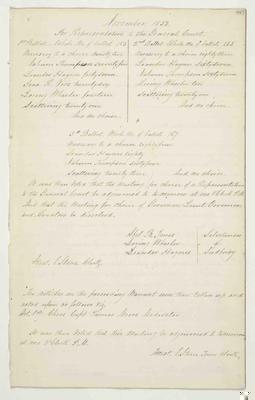 November 1853
For Representative to the General Court.
1st Ballot. Whole No of ballots 185
Necessary to a choice ninety three
Nahum Thompson seventy five
Leander Haynes fifty seven
Loring Wheeler fourteen
Scattering twenty one
And no choice.
2nd Ballot. Whole No of ballots 165
Necessary to a choice eighty three
Leander Haynes sixty seven
Nahum Thompson sixty four
Loring Wheeler ten
Scattering twenty
And no choice
3d Ballot. Whole No of ballots 167
Necessary to a choice eighty four
Leander Haynes eighty
Nahum Thompson sixty four
Scattering twenty three And no choice.
It was then Voted that the Meeting for choice of a Representative
to the General Court be adjourned to tomorrow at one O'clock P.M.
And that the Meeting for choice of Governor Lieut. Governor
and Senators be dissolved.
Loring Wheeler
Leander Haynes
Selectmen
of
Sudbury
The articles in the foregoing Warrant were then taken up and
acted upon as follows viz.
Art. 1st Chose Capt James Moore Moderator
It was then Voted that this Meeting be adjourned to tomorrow
at one O'Clock P.M.
Town Clerk